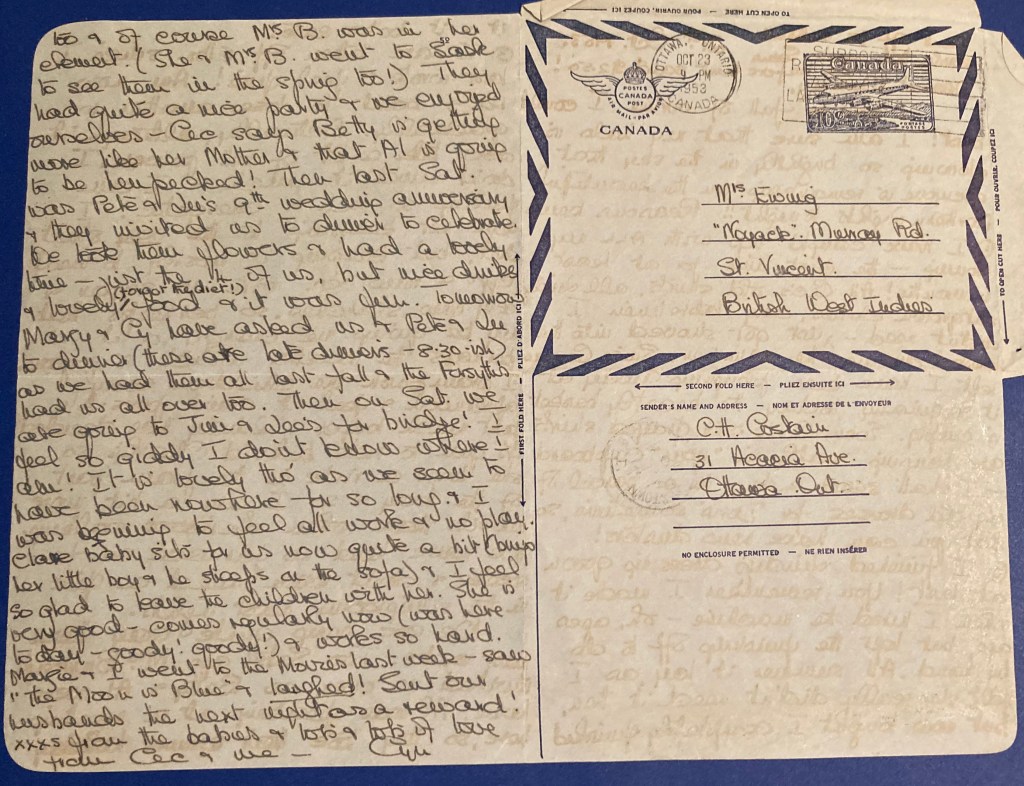 too & of course Mrs B. was in her
element. (She & Mr B. went to Sask
to see them in the spring too!) They
had quite a nice party & we enjoyed
ourselves – Cec says Betty is getting
more like her Mother & that Al is going
to be henpecked! Then last Sat.
was Pete & Lu's 9th wedding anniversary
& they invited us to dinner to celebrate.
We took them flowers & had a lovely
time – just the 4 of us, but nice drinks
(forgot the diet!)
& lovely food & it was fun. Tomorrow
Mary & Cy have asked us & Pete & Lu
to dinner (these are late dinners – 8:30-ish)
as we had them all last fall & the Forsyths
had us all over too. Then on Sat. we
are going to Jim & Lee's for bridge! I
feel so giddy I don't know where I
am! It is lovely tho' as we seem to
have been nowhere for so long & I
was beginning to feel all work & no play.
Clare baby sits for us now quite a bit (brings
her little boy & he sleeps on the sofa) & I feel
so glad to leave the children with her. She is
very good – comes regularly now (was here
today – goody! goody!) & works so hard.
Margie & I went to the Movies last week – saw
"The Moon is Blue" & laughed! Sent our
husbands the next night as a reward!
xxxs from the babies & lots & lots of love
from Cec & me –
TO OPEN CUT HERE – POUR OUVRIR, COUPEZ ICI
OTTAWA, ONTARIO
OCT 23
9 PM
1953
CANADA
POSTES
CANADA
POST
AIR MAIL • PAR AVION
CANADA
Canada
10¢
Mrs Ewing
"Noyack". Murray Rd.
St. Vincent.
British West Indies
TO OPEN CUT HERE – POUR OUVRIR, COUPEZ ICI
FIRST FOLD HERE – PLIEZ D'ABORD ICI
SECOND FOLD HERE – PLIEZ ENSUITE ICI
SENDER'S NAME AND ADDRESS – NOM ET ADRESSE DE L'ENVOYEUR
C.H. Costain
31 Acacia Ave.
Ottawa Ont.
NO ENCLOSURE PERMITTED – NE RIEN INSÉRER